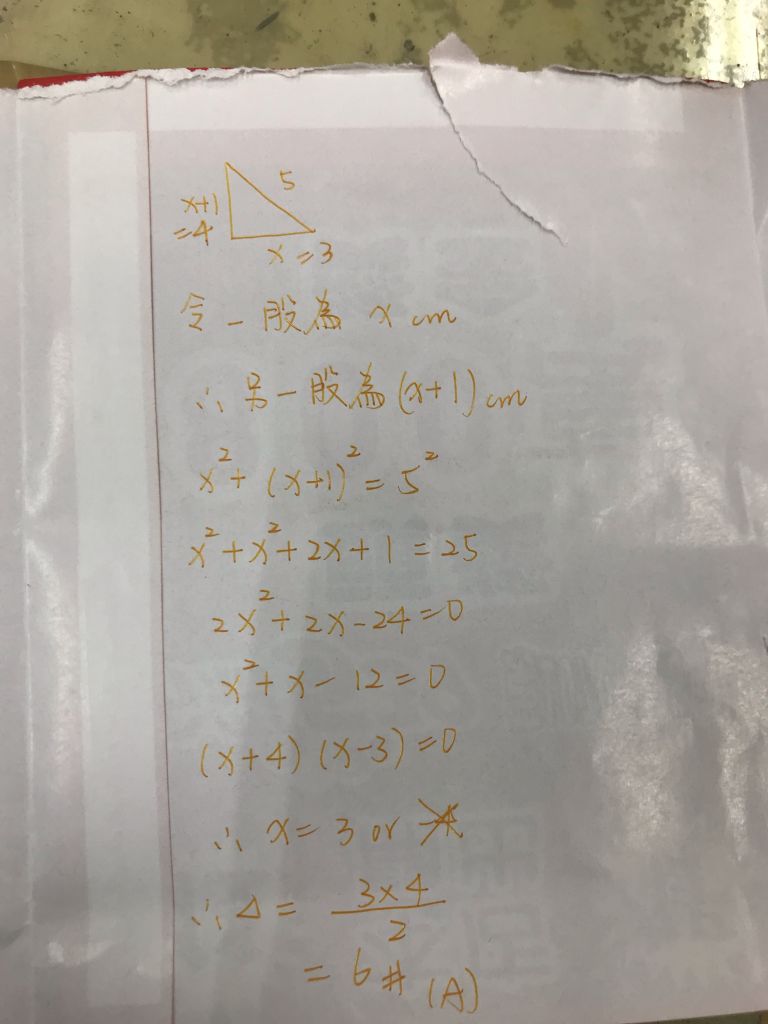 5
x+1
=4
x=3
令一股為 x cm
∴ 另一股為(x+1) cm
x²+(x+1)²=5²
x²+x²+2x+1=25
2x²+2x-24=0
x²+x-12=0
(x+4)(x-3)=0
∴ x=3 or
∴ △= 3×4
2
=6# (A)